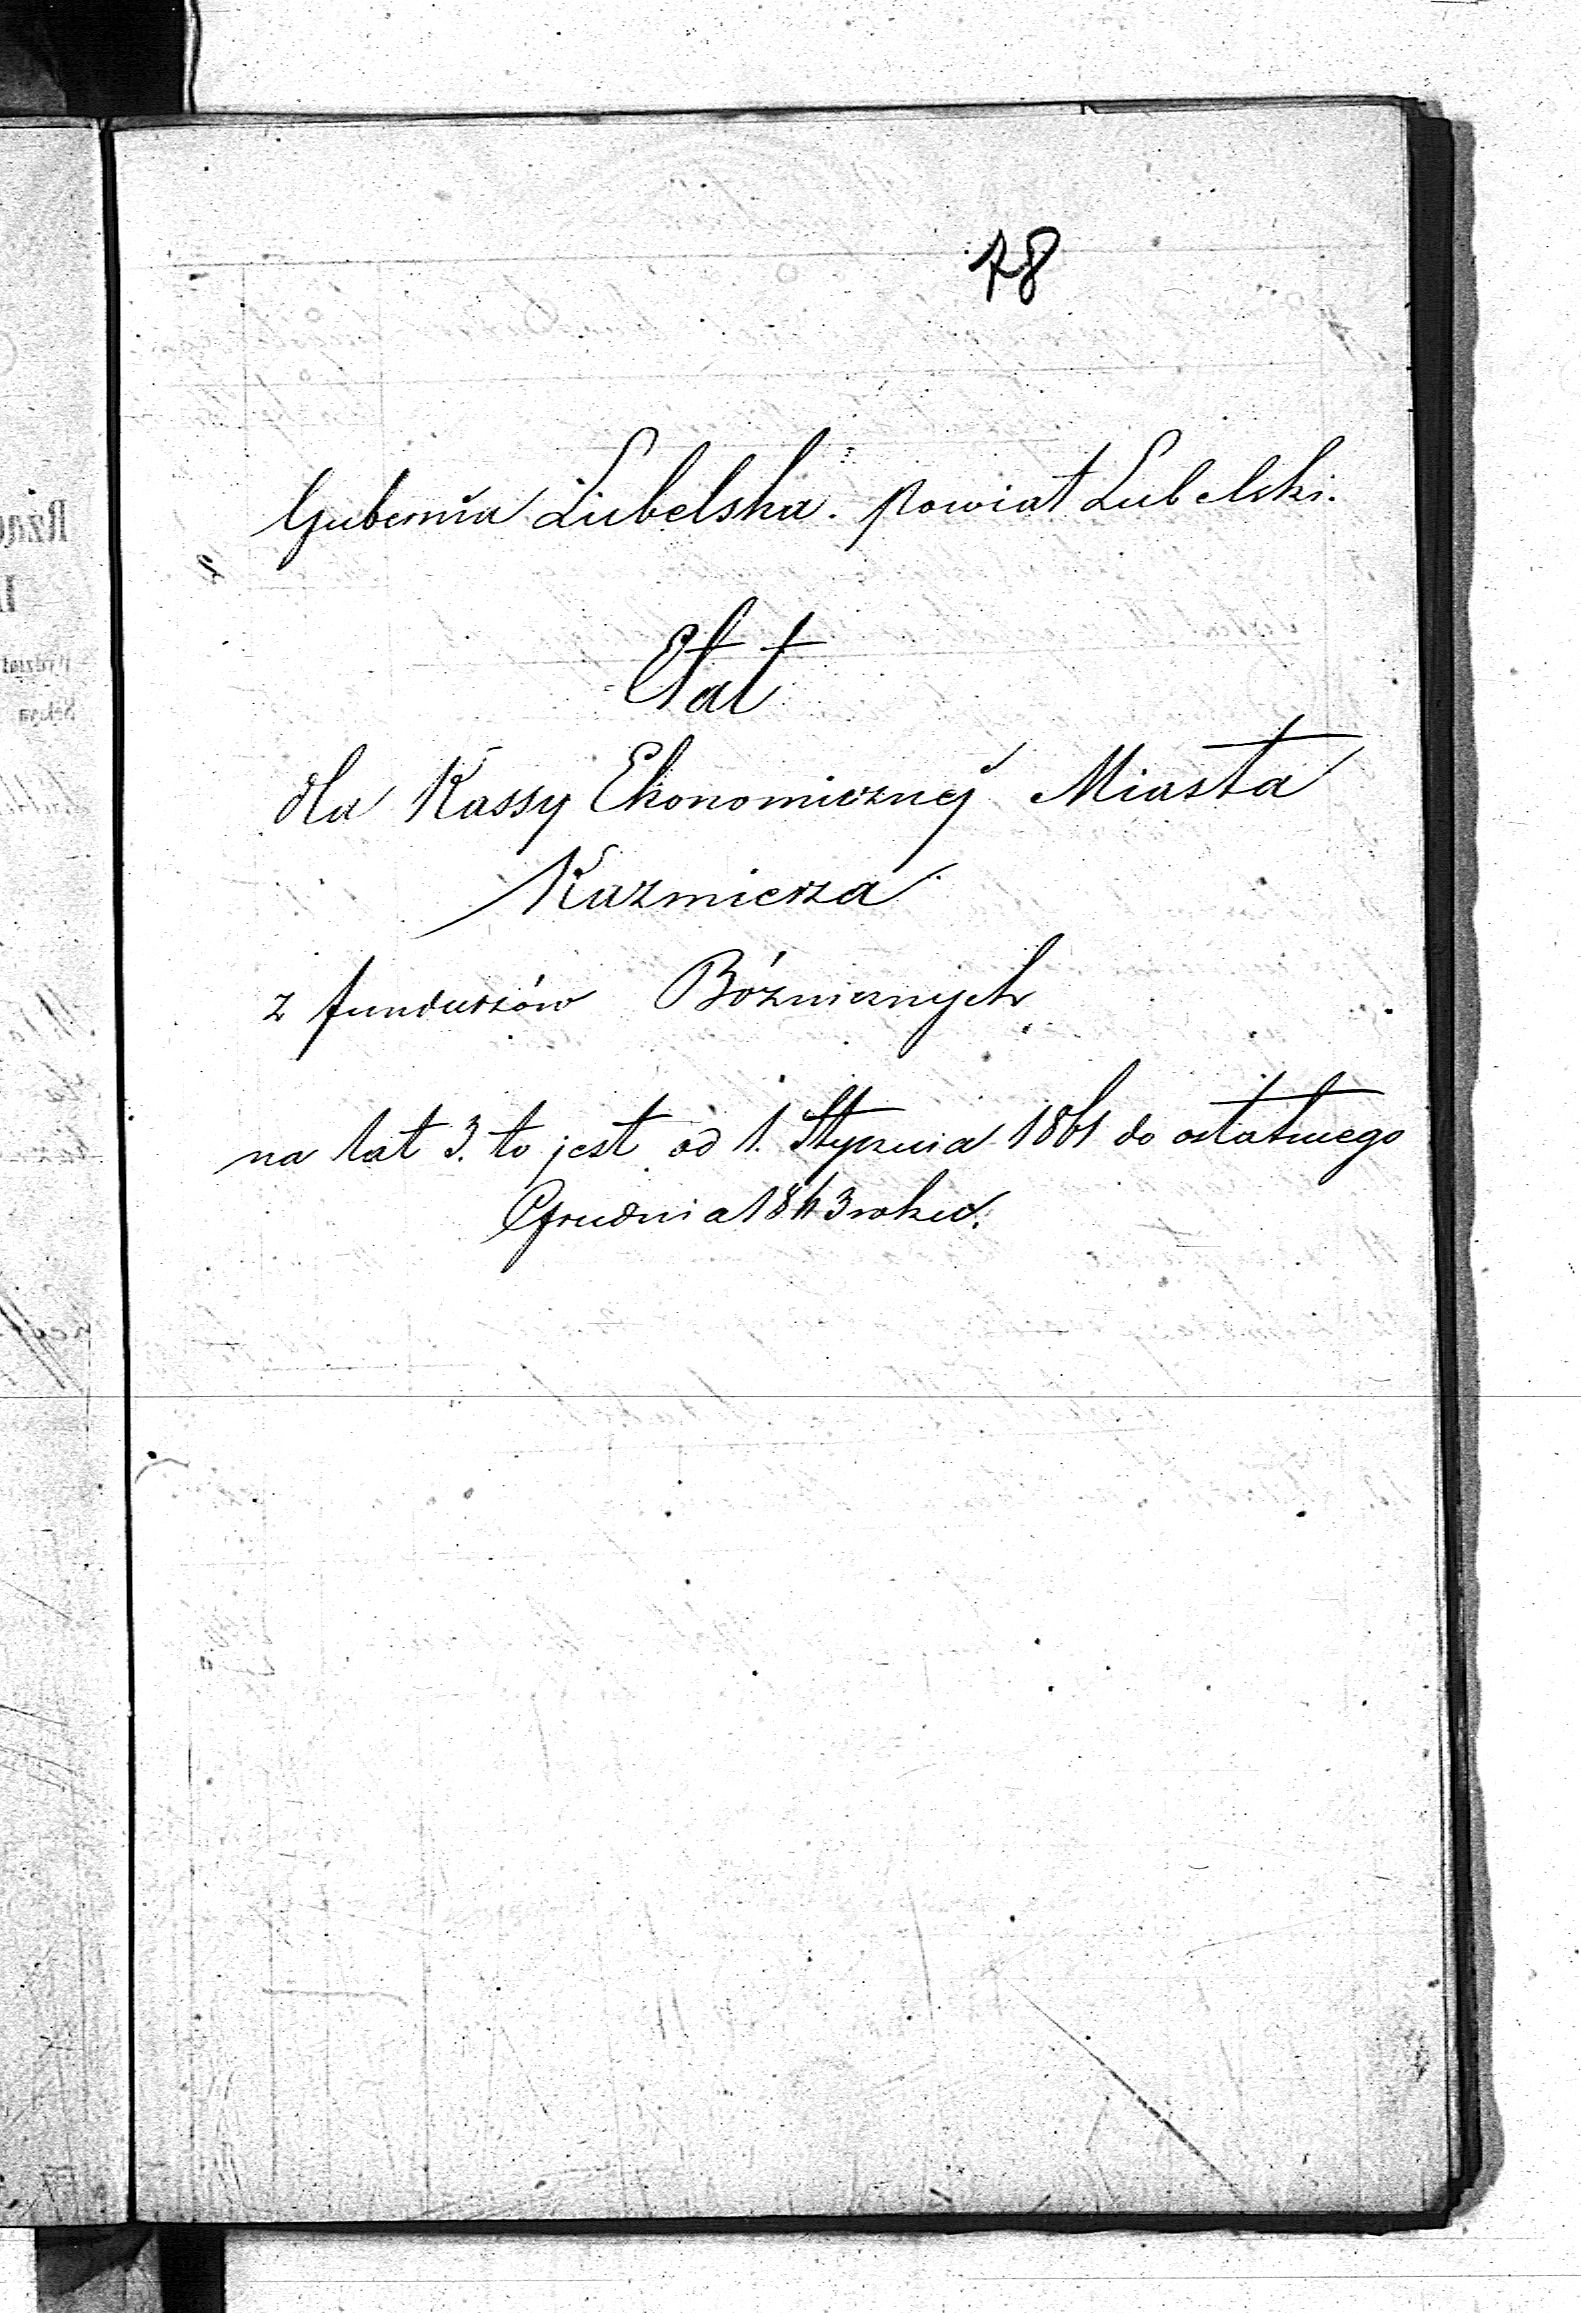 78
Gubernia Lubelska. Powiat Lubelski.
Etat
dla Kassy Ekonomicznej Miasta
Kazmierza
z funduszów Bóżnicznych
na lat 3. to jest od 1. Stycznia 1861 do ostatniego
Grudnia 1863 roku.